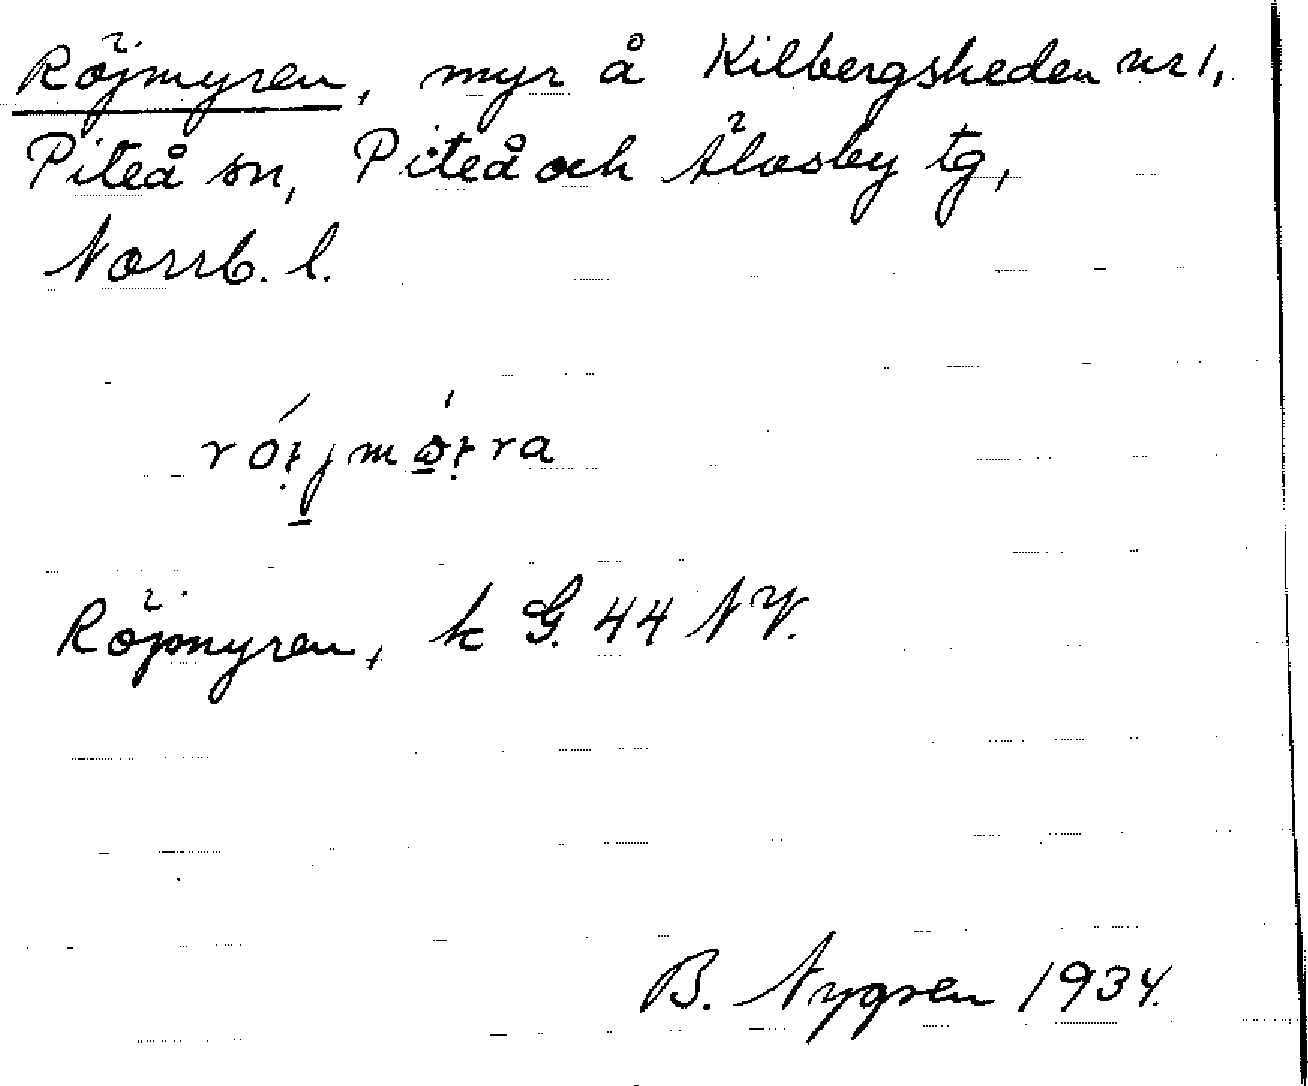 Röjmyren, myr å Kilbergsheden nr 1,
Piteå sn, Piteå och Älvsby tg,
Norrb. l.
Röjmyren, k G. 44 NV.
B. Nygren 1934.